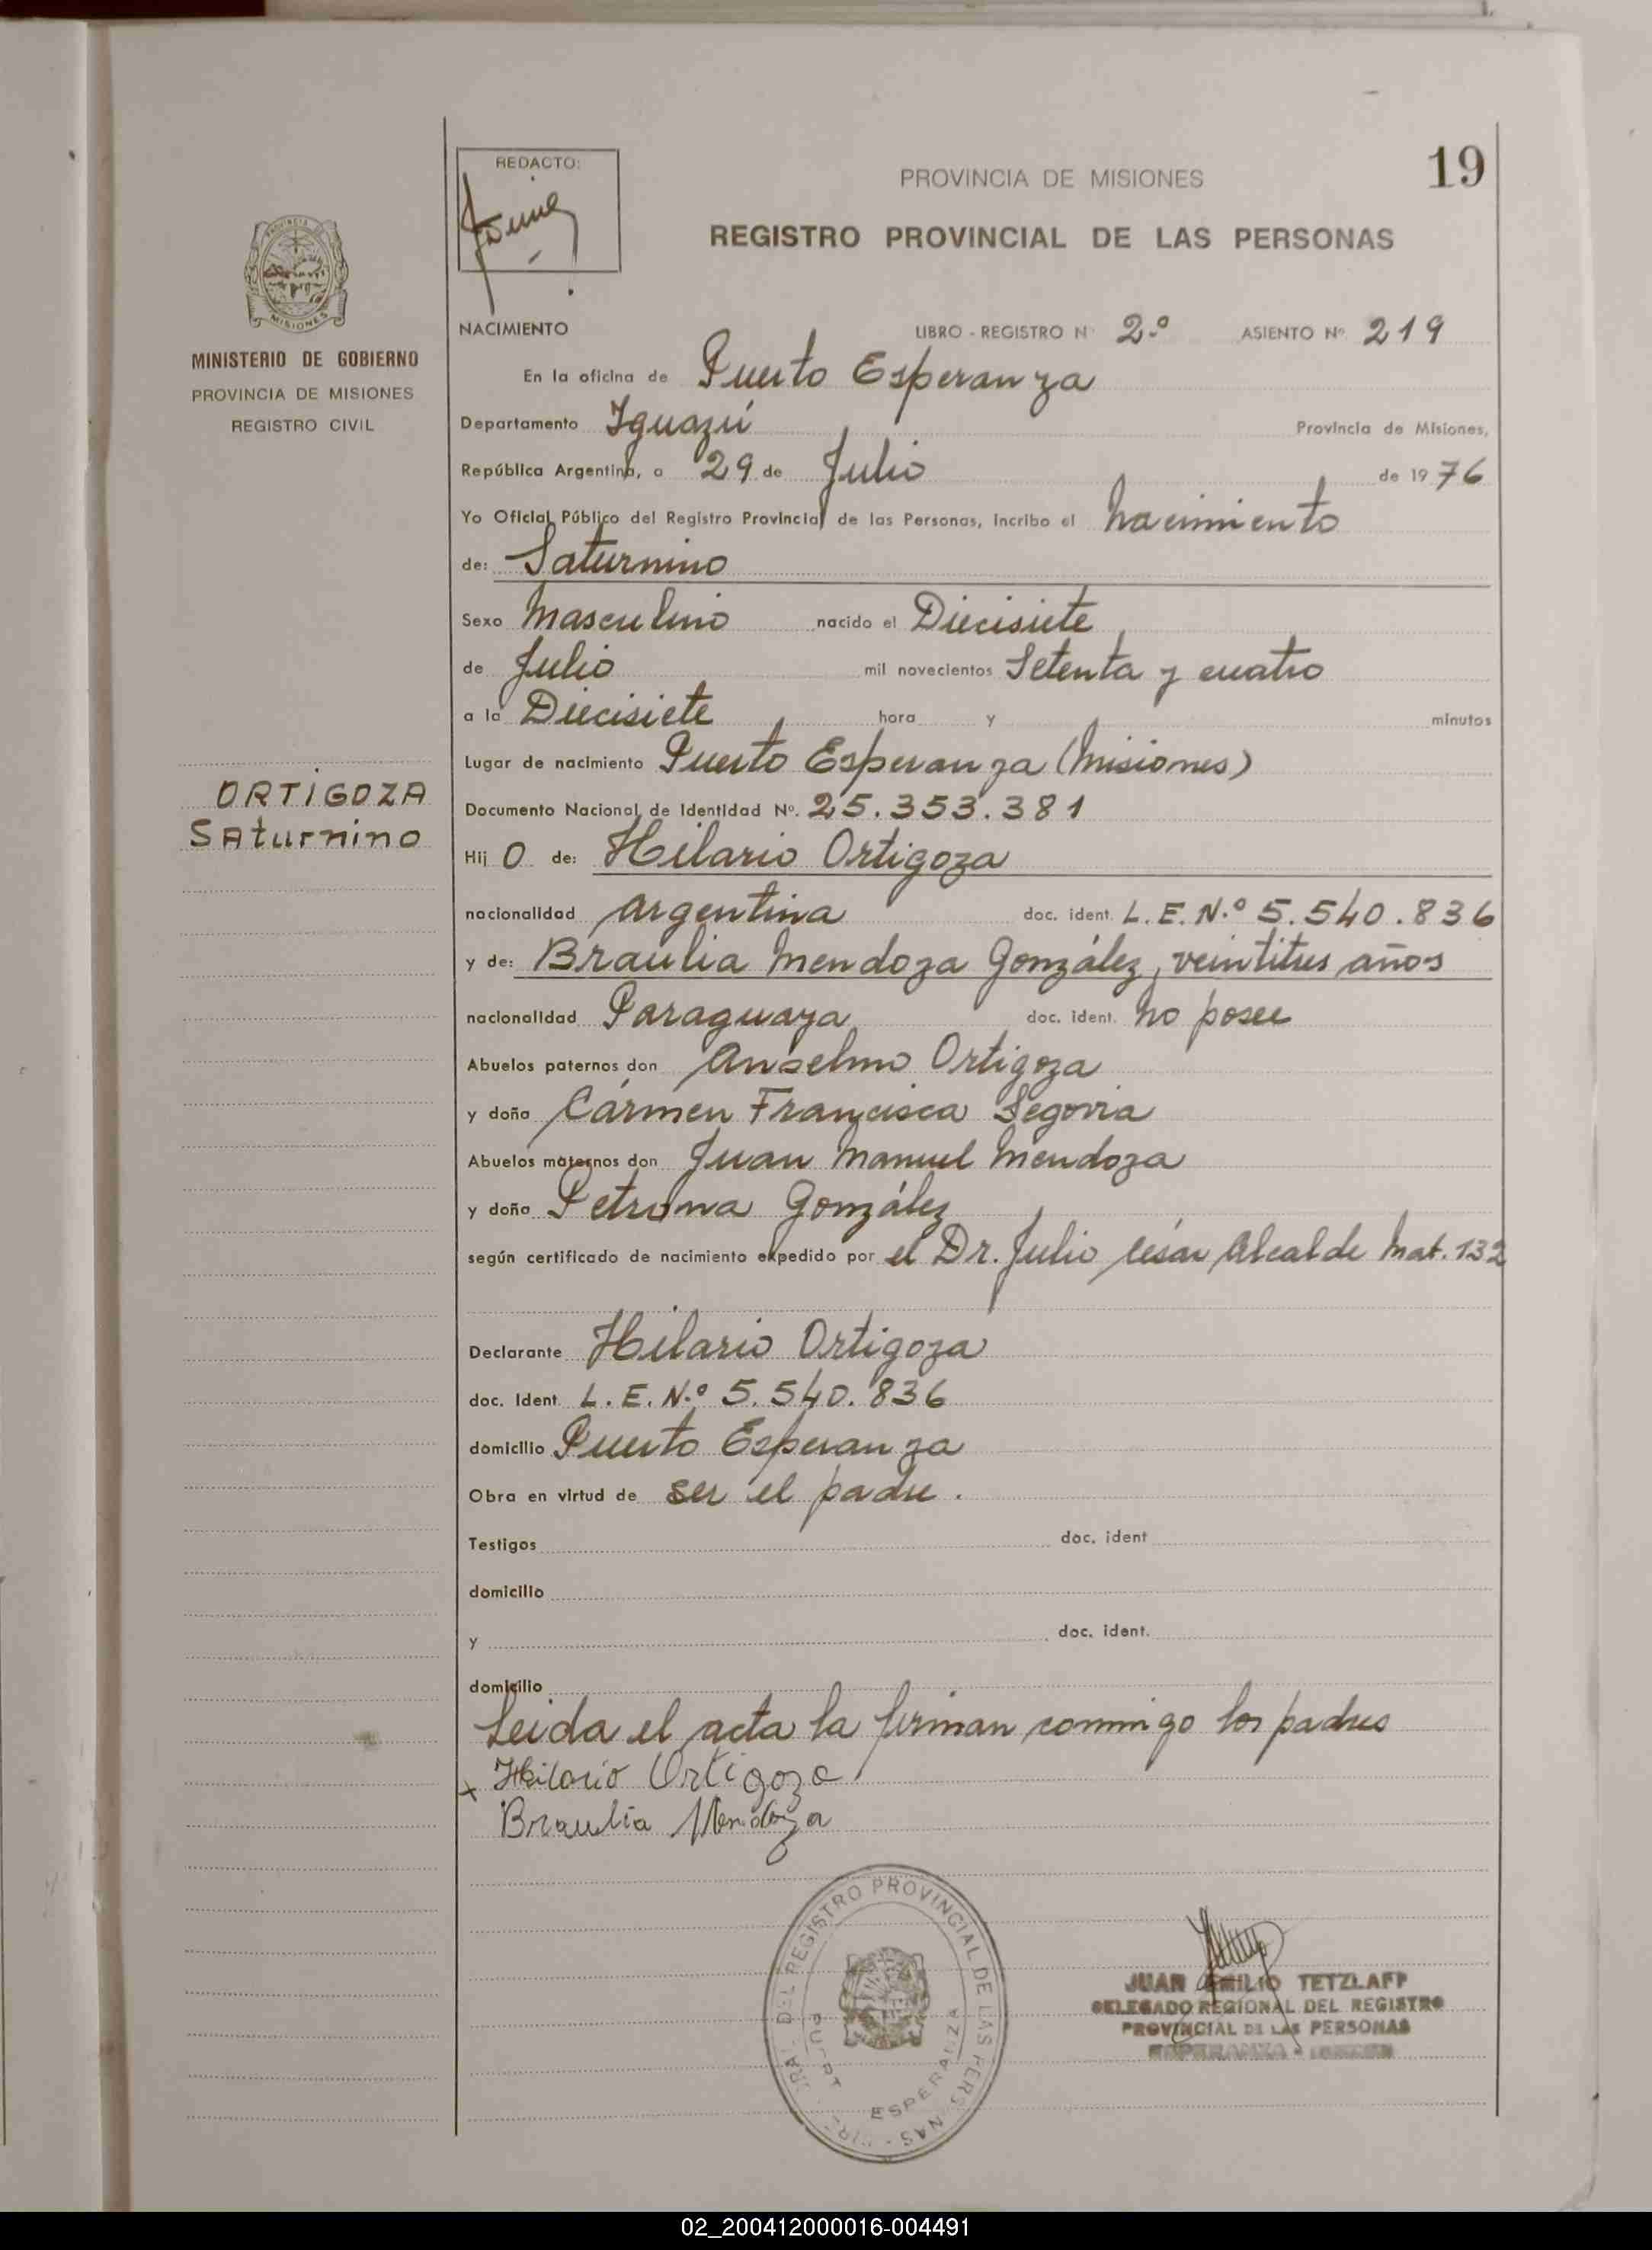 19
REDACTO:
PROVINCIA DE MISIONES
REGISTRO PROVINCIAL DE LAS PERSONAS
MISIONES
MINISTERIO DE GOBIERNO
PROVINCIA DE MISIONES
REGISTRO CIVIL
ORTIGOZA
SAturnino
NACIMIENTO LIBRO - REGISTRO Nº 2.º ASIENTO Nº 219
En la oficina de Puerto Esperanza
Departamento Iguazú Provincia de Misiones,
República Argentina, a 29 de Julio de 1976
Yo Oficial Público del Registro Provincial de las Personas, incribo el nacimiento
de: Saturnino
Sexo Masculino nacido el Diecisiete
de Julio mil novecientos Setenta y cuatro
a la Diecisiete hora y minutos
Lugar de nacimiento Puerto Esperanza (Misiones)
Documento Nacional de Identidad Nº. 25.353.381
Hij o de: Hilario Ortigoza
nacionalidad argentina doc. ident. L.E.N.º 5.540.836
y de: Braulia Mendoza González, veintitres años
nacionalidad Paraguaya doc. ident. no posee
Abuelos paternos don Anselmo Ortigoza
y doña Cármen Francisca Segovia
Abuelos maternos don Juan Manuel Mendoza
y doña Petrona González
según certificado de nacimiento expedido por el Dr. Julio César Alcalde Mat. 132
Declarante Hilario Ortigoza
doc. Ident. L.E.N.º 5.540.836
domicilio Puerto Esperanza
Obra en virtud de ser el padre.
Testigos doc. ident
domicilio
y doc. ident.
domicilio
Leida el acta la firman conmigo los padres
x Hilario Ortigoza
Braulia Mendoza
DEL REGISTRO PROVINCIAL DE LAS PERSONAS
ESPERANZA
JUAN EMILIO TETZLAFF
DELEGADO REGIONAL DEL REGISTRO
PROVINCIAL DE LAS PERSONAS
ESPERANZA
02_200412000016-004491